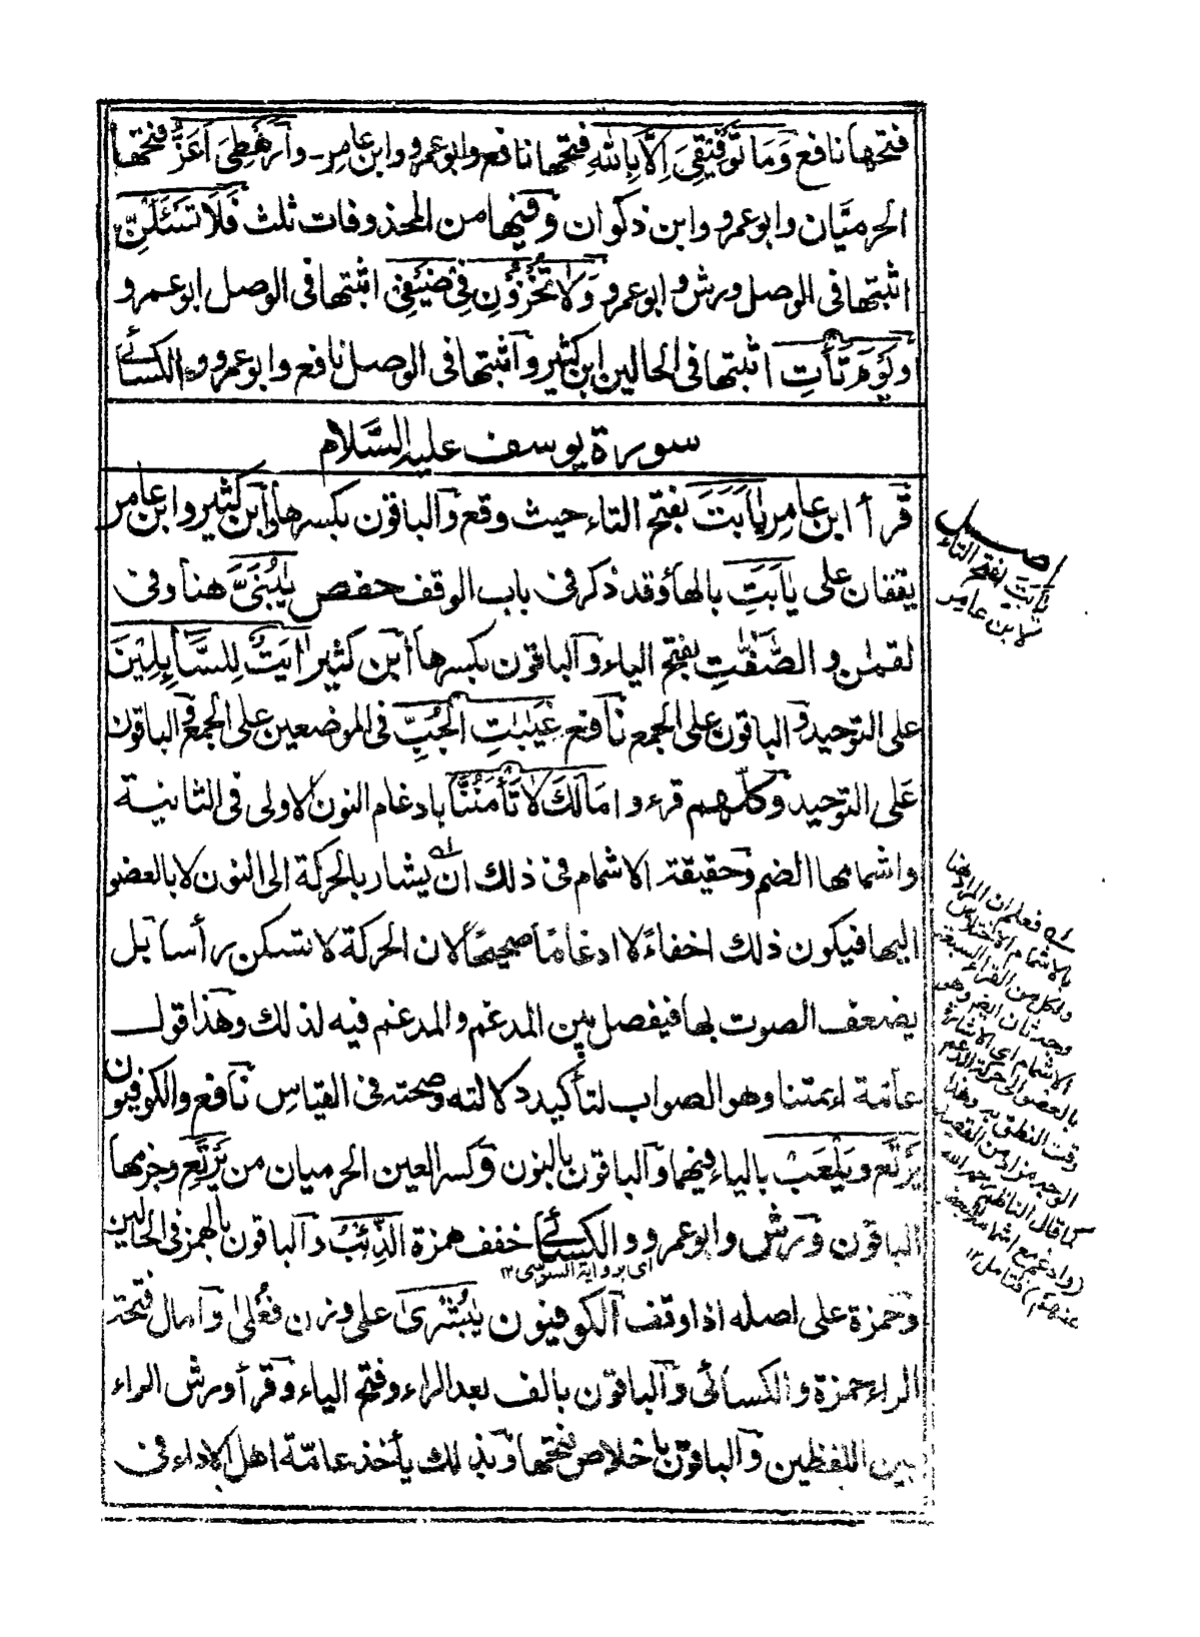 فتحها نافع وَمَا تَوْفِيْقِىَ اِلَّا بِاللهِ فتحها نافع وابو عمرو وابن عامر۔ واَرَهْطِىَ اَعَزُّ فتحها
الحرميَّان وابو عمرو وابن ذكوان وفيها من المحذوفات ثلث فَلَا تَسْـَٔلَنِّ
اثبتها فى الوصل ورش وابو عمرو وَلَا تُخْزُوْنِ فِىْ ضَيْفِىْ اثبتها فى الوصل ابو عمرو
ويَوْمَ يَاْتِ اثبتها فى الحالين ابن كثير واثبتها فى الوصل نافع وابو عمرو والكسائے
سورة يوسف عليه السَّلام
قرأ ابن عامر يٰاَبَتَ بفتح التاء حيث وقع والباقون بكسرها وابن كثير وابن عامر
يقفان على يٰاَبَتِ بالهاء وقد ذكر فى باب الوقف حفص يٰبُنَىَّ هنا وفى
لقمٰن و الصّٰفّٰتِ بفتح الياء والباقون بكسرها ابن كثير اٰيَتٌ لِلسَّآئِلِيْنَ
على التوحيد والباقون على الجمع نافع غَيٰبٰتِ الْجُبِّ فى الموضعين على الجمع والباقون
على التوحيد وكلهم قرءوا مَالَكَ لَا تَأْمَنَّا بادغام النون الاولى فى الثانية
واشمامها الضم وحقيقة الاشمام فى ذلك ان يشار بالحركة الى النون لا بالعضو
اليها فيكون ذلك اخفاءً لا ادغامًا صحيحًا لان الحركة لا تسكن رأسا بل
يضعف الصوت بها فيفصل بين المدغم والمدغم فيه لذلك وهذا قول
عامّة ائمتنا وهو الصواب لتأكيد دلالته وصحته فى القياس نافع والكوفيون
يَرْتَع ويَلْعَبْ بالياء فيهما والباقون بالنون وكسر العين الحرميان من يَرْتَعِ وجزمها
الباقون ورش وابو عمرو والكسائے خفف همزة الذِّئْبُ والباقون بالهمز فى الحالين
اى برواية السوسى ١٢
وحمزة على اصله اذا وقف الكوفيون يٰبُشْرٰى على وزن فُعْلٰى وامال فتحة
الراء حمزة والكسائى والباقون بالف بعد الراء وفتح الياء وقرأ ورش الراء
بين اللفظين والباقون باخلاص فتحها وبذلك يأخذ عامّة اهل الاداء فى
اصل
يٰاَبَتَ بفتح التاء
لابن عامر
له فعلم ان المراد هنا
بالاشمام الاختلاس
ولكل من القراء السبعة
وجه ثان ايضا وهو
الاشمام اى الاشارة
بالعضو الى حركة المدغم
وقت النطق به وهذا
الوجه مزاد من القصيد
كما قال الناظم رحمه الله
(وادغم مع اشمامه البعض
عنهم) فتامل ١٢